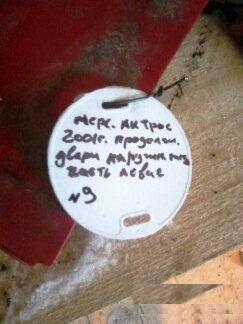 мерс. Актрос
2001г. продолж.
двери наружная
часть левые
№9